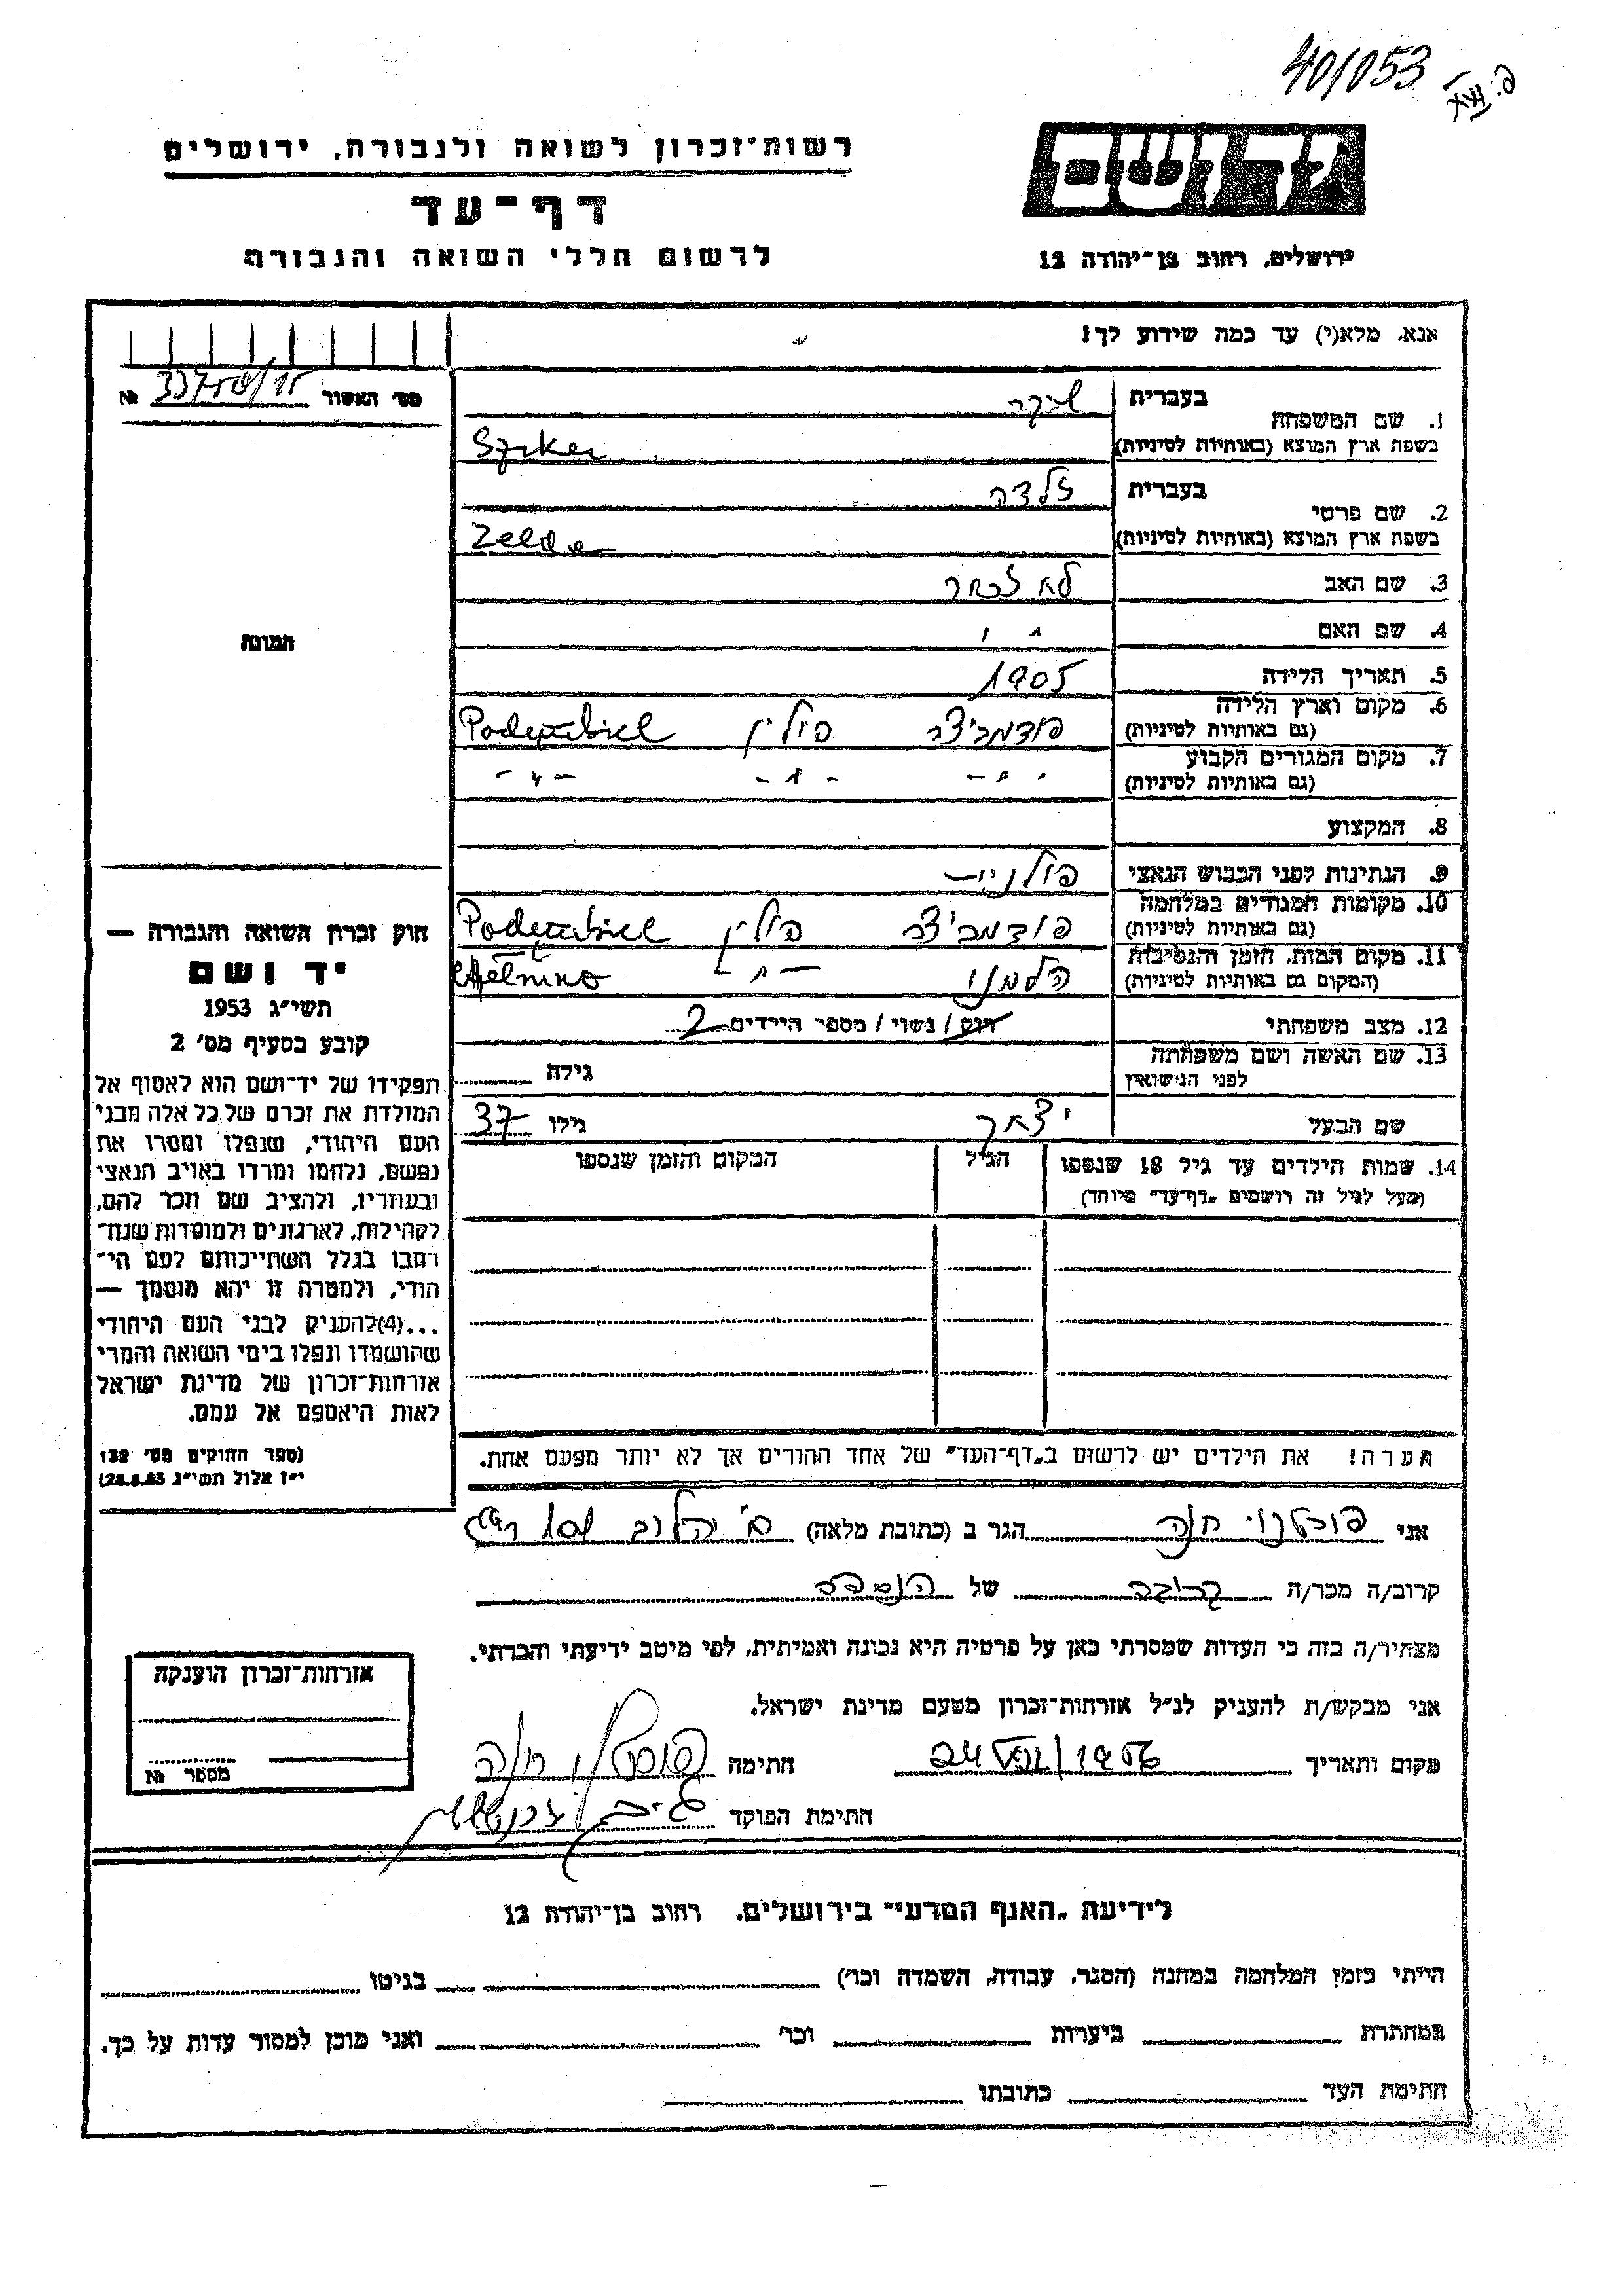 40/053
רשות־זכרון לשואה ולגבורה, ירושלים
דף־עד
לרשום חללי השואה והגבורה
יד ושם
ירושלים, רחוב בן־יהודה 12
אנא, מלא(י) עד כמה שידוע לך!
מס׳ האשור №
1. שם המשפחה בעברית
בשפת ארץ המוצא (באותיות לטיניות)
2. שם פרטי בעברית זלדה
בשפת ארץ המוצא (באותיות לטיניות) Zelda
3. שם האב לא נזכר
4. שם האם
5. תאריך הלידה 1905
6. מקום וארץ הלידה
(גם באותיות לטיניות) פודמביצה פולין
7. מקום המגורים הקבוע
(גם באותיות לטיניות)
8. המקצוע
9. הנתינות לפני הכבוש הנאצי פולנית
10. מקומות המגורים במלחמה
(גם באותיות לטיניות) פודמביצה פולין
11. מקום המות, הזמן והנסיבות
(המקום גם באותיות לטיניות) הלמנו Chelmno
12. מצב משפחתי רוק / נשוי / מספר הילדים 2
13. שם האשה ושם משפחתה
לפני הנישואין גילה
שם הבעל יצחק גילו 37
14. שמות הילדים עד גיל 18 שנספו הגיל המקום והזמן שנספו
(מעל לגיל זה רושמים „דף־עד״ מיוחד)
הערה! את הילדים יש לרשום ב„דף־העד״ של אחד ההורים אך לא יותר מפעם אחת.
תמונה
חוק זכרון השואה והגבורה —
יד ושם
תשי״ג 1953
קובע בסעיף מס׳ 2
תפקידו של יד־ושם הוא לאסוף אל
המולדת את זכרם של כל אלה מבני
העם היהודי, שנפלו ומסרו את
נפשם, נלחמו ומרדו באויב הנאצי
ובעוזריו, ולהציב שם וזכר להם,
לקהילות, לארגונים ולמוסדות שנח־
רבו בגלל השתייכותם לעם הי־
הודי, ולמטרה זו יהא מוסמך —
...(4)להעניק לבני העם היהודי
שהושמדו ונפלו בימי השואה והמרי
אזרחות־זכרון של מדינת ישראל
לאות היאספם אל עמם.
(ספר החוקים מס׳ 132
י״ז אלול תשי״ג 28.8.53)
אני חנה הגר ב (כתובת מלאה)
קרוב/ה מכר/ה קרובה של הנספה
מצהיר/ה בזה כי העדות שמסרתי כאן על פרטיה היא נכונה ואמיתית, לפי מיטב ידיעתי והכרתי.
אני מבקש/ת להעניק לנ״ל אזרחות־זכרון מטעם מדינת ישראל.
מקום ותאריך 24 VIII/1956 חתימה
חתימת הפוקד
אזרחות־זכרון הוענקה
מספר №
לידיעת „האגף המדעי״ בירושלים, רחוב בן־יהודה 12
הייתי בזמן המלחמה במחנה (הסגר, עבודה, השמדה וכו׳) בגיטו
במחתרת ביערות וכו׳ ואני מוכן למסור עדות על כך.
חתימת העד כתובתו